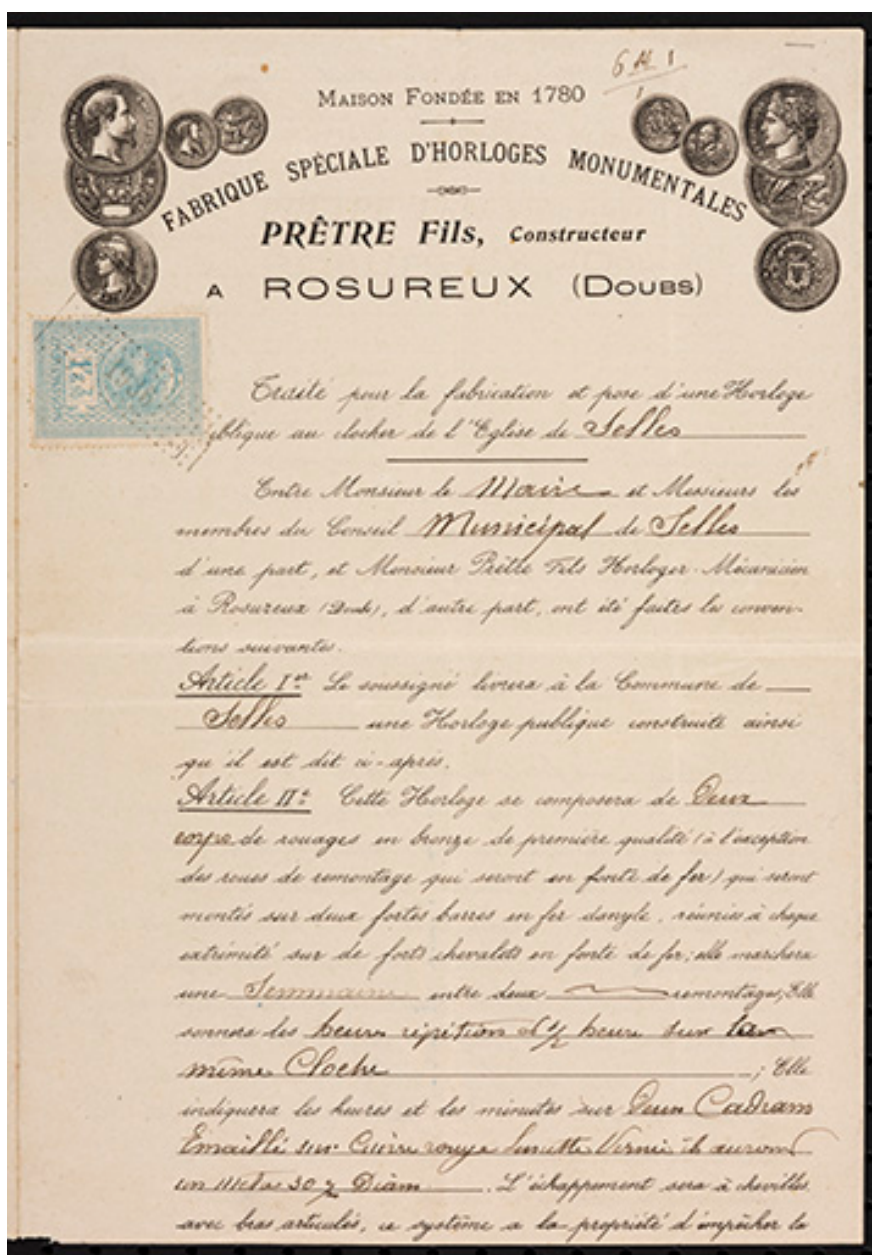 6 H 1
1
MAISON FONDÉE EN 1780
FABRIQUE SPÉCIALE D'HORLOGES MONUMENTALES
PRÊTRE Fils, Constructeur
A ROSUREUX (DOUBS)
Traité pour la fabrication et pose d'une Horloge
publique au clocher de l'Eglise de Selles
Entre Monsieur le Maire et Messieurs les
membres du Conseil Municipal de Selles
d'une part, et Monsieur Prêtre Fils Horloger-Mécanicien
à Rosureux (Doubs), d'autre part, ont été faites les conven-
tions suivantes.
Article Ier Le soussigné livrera à la Commune de
Selles une Horloge publique construite ainsi
qu'il est dit ci-après.
Article IIe Cette Horloge se composera de Deux
corps de rouages en bronze de première qualité (à l'exception
des roues de remontage qui seront en fonte de fer) qui seront
montés sur deux fortes barres en fer d'angle, réunies à chaque
extrémité sur de forts chevalets en fonte de fer; elle marchera
une Semmaine entre deux remontages; Elle
sonnera les heures répétition et 1/2 heure sur la
même Cloche ; Elle
indiquera les heures et les minutes sur Deux Cadrans
Emaillé sur Cuivre rouge lunette Vernie ils auront
un Mètre 30 Diam. L'échappement sera à chevilles
avec bras articulés, ce système a la propriété d'empêcher la